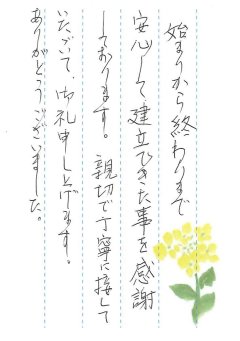 始まりから終わりまで
安心して建立できた事を感謝
しております。親切で丁寧に接して
いただいて、御礼申し上げます。
ありがとうございました。